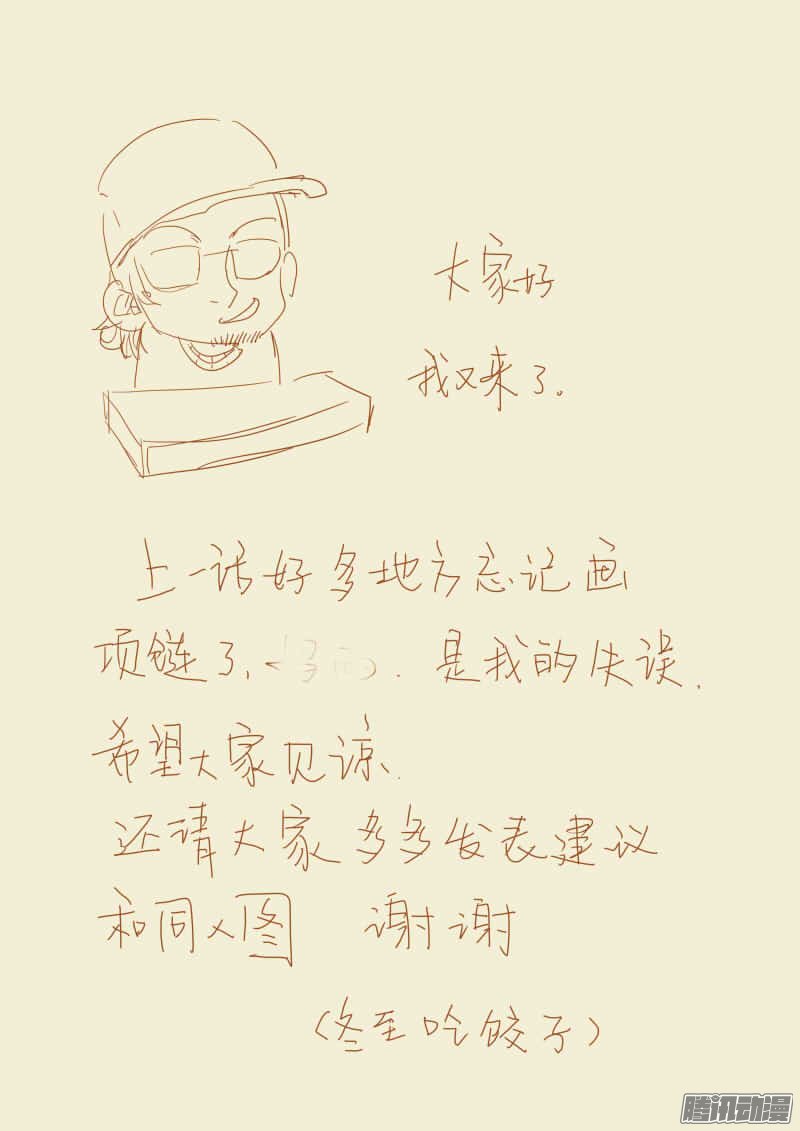 大家好
我又来了。
上一话好多地方忘记画
项链了、是我的失误.
希望大家见谅.
还请大家多多发表建议
和同人图 谢谢
(冬至吃饺子)
腾讯动漫